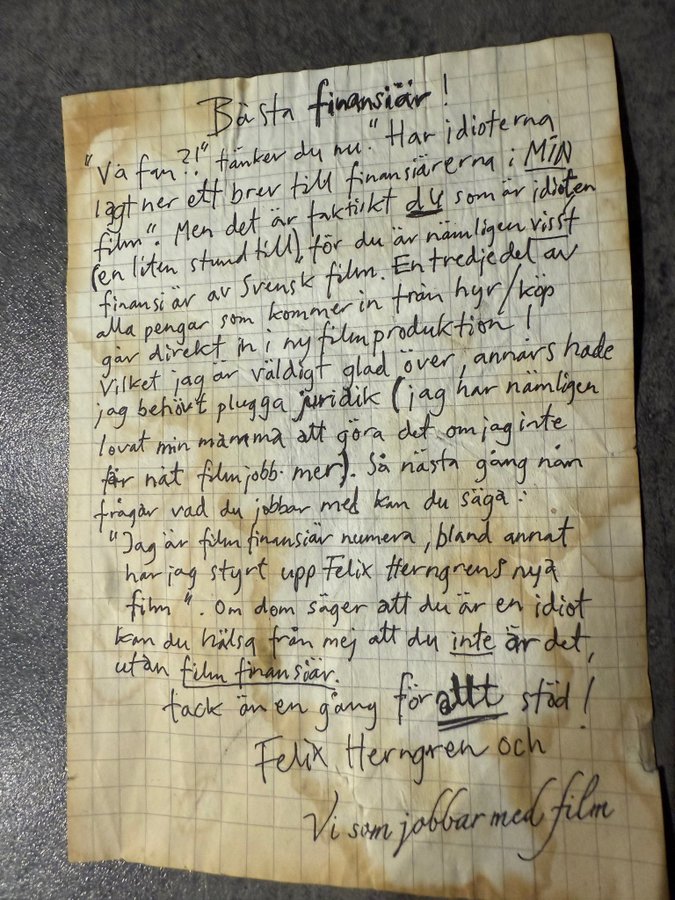 Bästa finansiär!
"Va fan?!" tänker du nu. "Har idioterna
lagt ner ett brev till finansiärerna i MIN
film". Men det är faktiskt du som är idioten
(en liten stund till), för du är nämligen visst
finansiär av Svensk film. En tredjedel av
alla pengar som kommer in från hyr/köp
går direkt in i ny filmproduktion!
Vilket jag är väldigt glad över, annars hade
jag behövt plugga juridik (jag har nämligen
lovat min mamma att göra det om jag inte
får nåt filmjobb mer). Så nästa gång nån
frågar vad du jobbar med kan du säga:
"Jag är filmfinansiär numera, bland annat
har jag styrt upp Felix Herngrens nya
film". Om dom säger att du är en idiot
kan du hälsa från mej att du inte är det,
utan filmfinansiär.
tack än en gång för allt stöd!
Felix Herngren och
Vi som jobbar med film